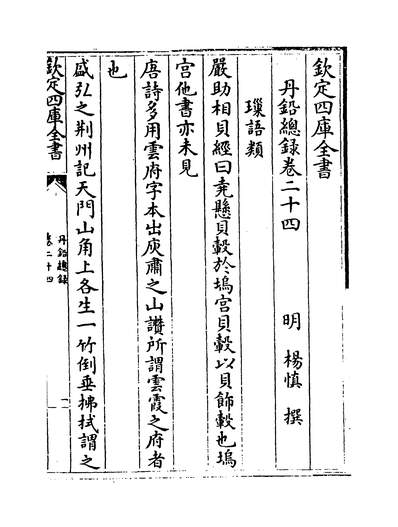 欽定四庫全書
丹鉛總録卷二十四
明 楊慎 撰
璅語類
嚴助相貝經曰堯懸貝轂於塢宫貝轂以貝飾轂也塢
宫他書亦未見
唐詩多用雲府字本出庾肅之山讃所謂雲霞之府者
也
盛弘之荆州記天門山角上各生一竹倒垂拂拭謂之
欽定四庫全書
丹鉛總録
卷二十四
一